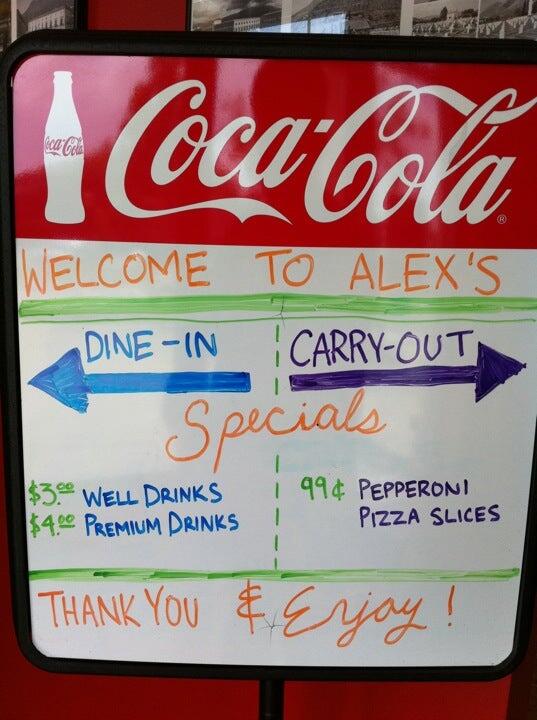 Coca-Cola
Coca-Cola ®
WELCOME TO ALEX'S
DINE-IN CARRY-OUT
Specials
$3.00 WELL DRINKS
$4.00 PREMIUM DRINKS
99¢ PEPPERONI
PIZZA SLICES
THANK YOU & Enjoy!